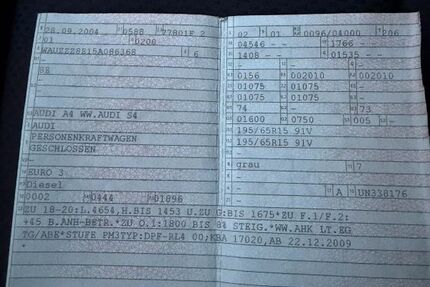 28.09.2004 0588 77801F 2
01 0200
WAUZZZ8E15A086368 6
8E
AUDI A4 WW.AUDI S4
AUDI
PERSONENKRAFTWAGEN
GESCHLOSSEN
EURO 3
Diesel
0002 0444 01896
ZU 18-20:L.4654,H.BIS 1453 U.ZU G:BIS 1675*ZU F.1/F.2:
+45 B.ANH-BETR.*ZU O.1:1800 BIS 8% STEIG.*WW.AHK LT.EG
TG/ABE*STUFE PM3TYP:DPF-RL4 00;KBA 17020,AB 22.12.2009
02 01 0096/04000 206
04546 1766
1408 01535
0156 002010 002010
01075 01075 01075
01075 01075
74 73
01600 0750 005
195/65R15 91V
195/65R15 91V
grau 7
A UN338176